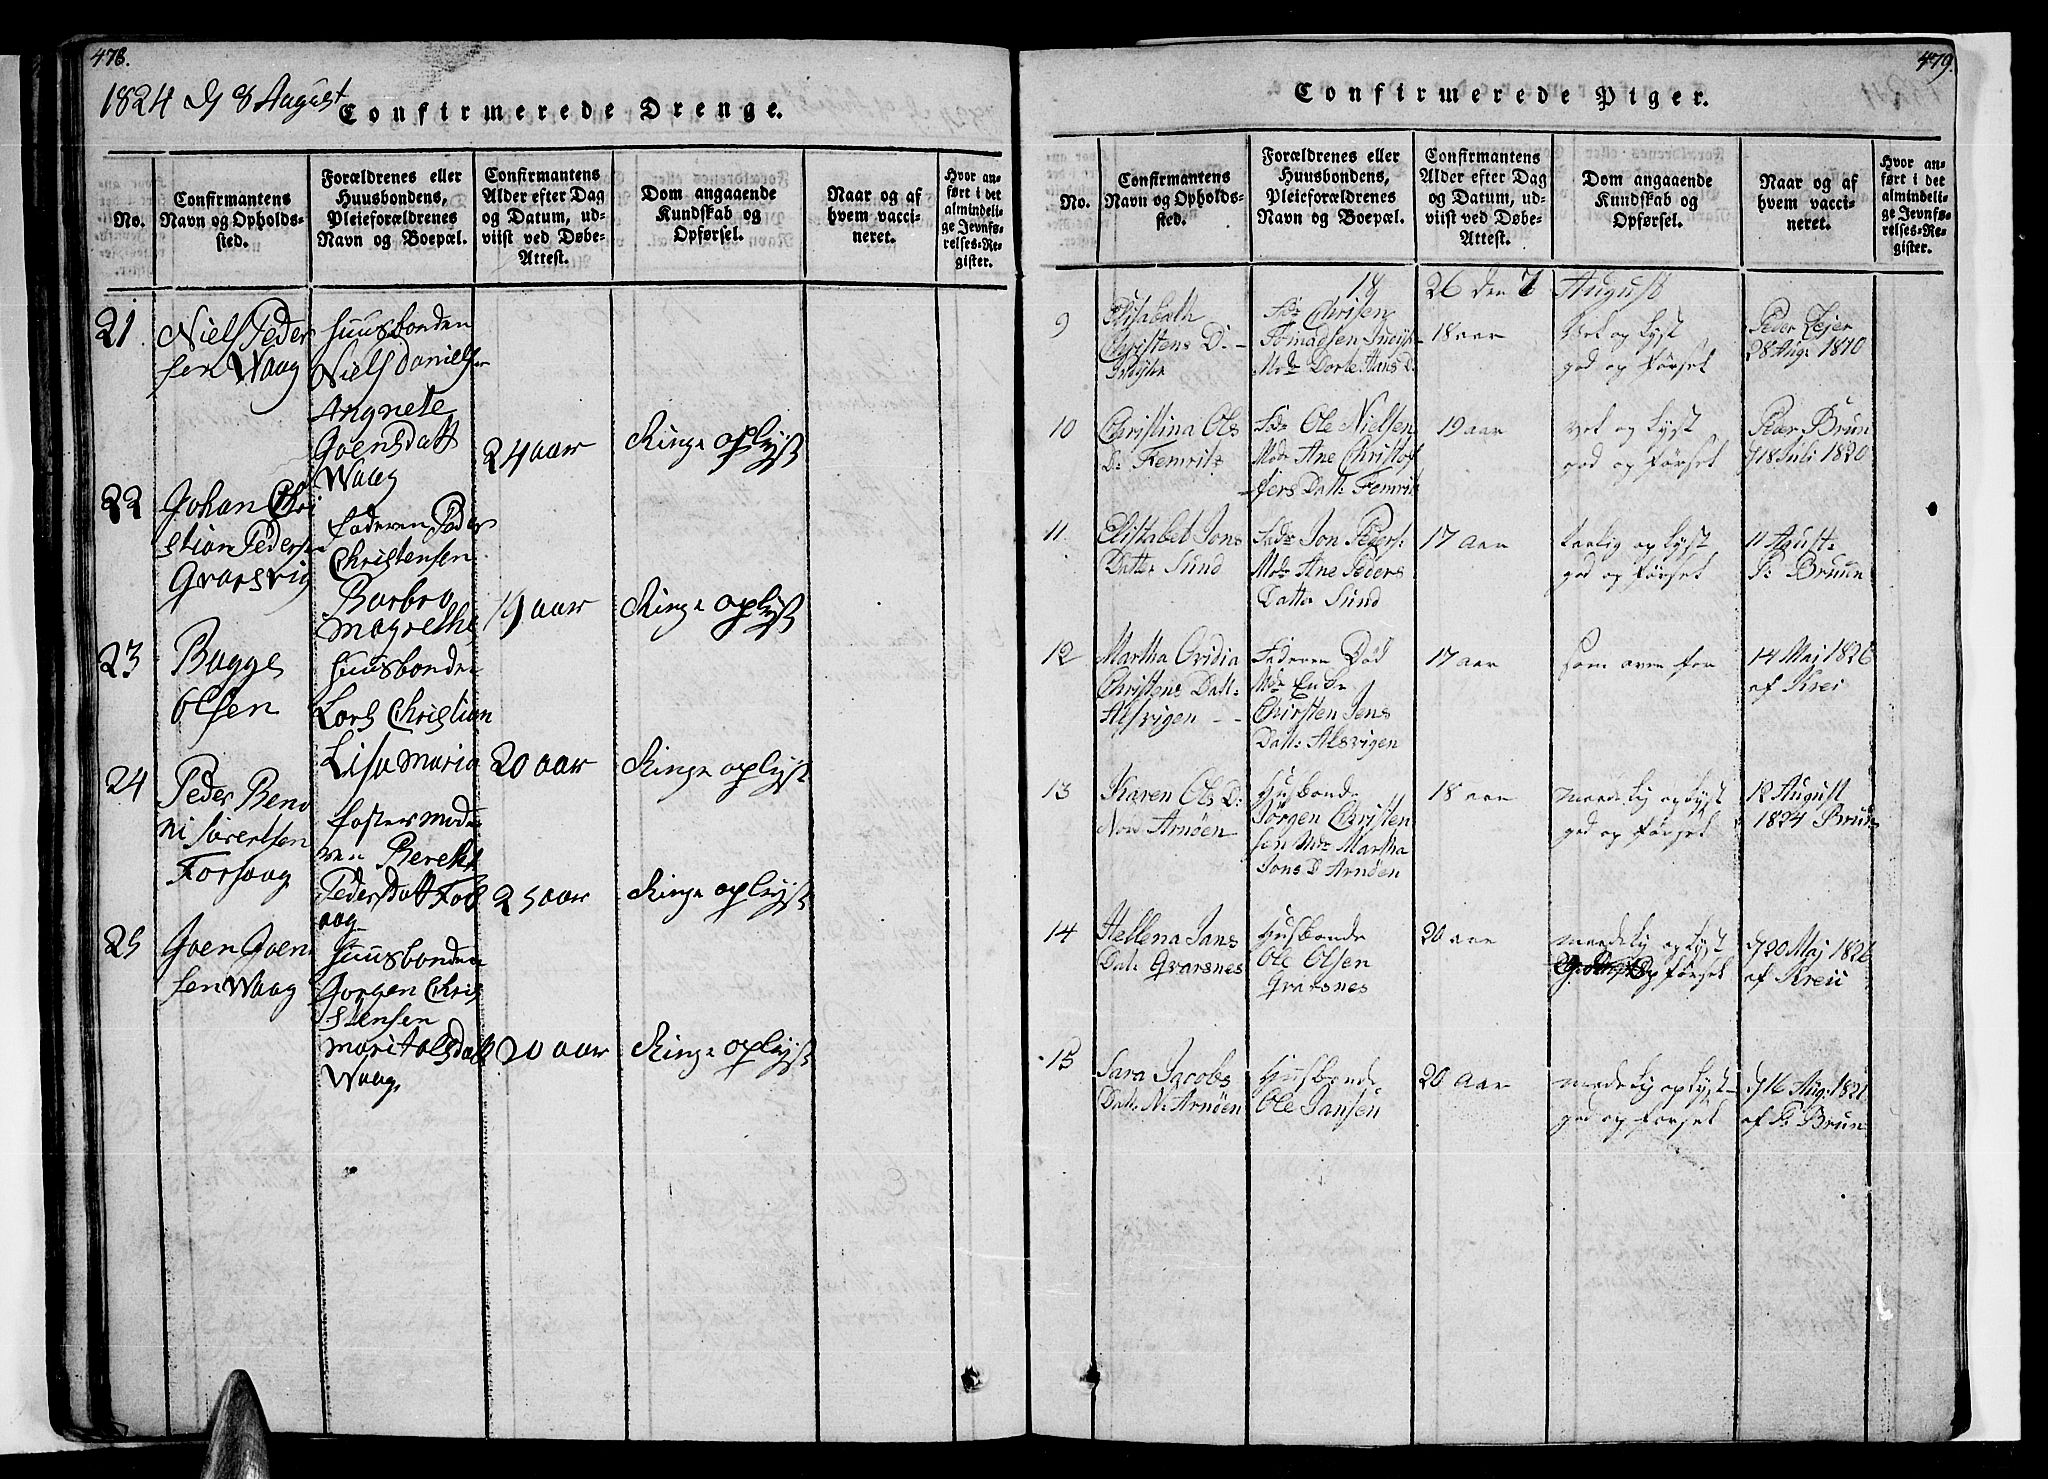 478.
1824 d 8 August
Confirmerede Drenge.
No.
Confirmantens
Navn og Opholds-
sted.
Forældrenes eller
Huusbondens,
Pleieforældrenes
Navn og Boepæl.
Confirmantens
Alder efter Dag
og Datum, ud-
viist ved Døbe-
Attest.
Dom angaaende
Kundskab og
Opførsel.
Naar og af
hvem vacci-
neret.
Hvor an-
ført i det
almindeli-
ge Jevnfø-
relses-Re-
gister.
21
Niels Peder
sen Waag
Huusbonden
Niels Danielsen
Angnete
Joensdatt
Waag
24 aar
Ringe oplyst
22
Johan Chri
stian Pedersen
Qvarsvig
Faderen Peder
Christensen
Barbro
Magrethe
19 aar
Ringe oplyst
23
Bagge
Olsen
Huusbonden
Lars Christian
Lisa Maria
20 aar
Ringe oplyst
24
Peder Beno
ni Siverttsen
Forsaag
Foster mode
ren Berethe
Peders Datt For
aag
25 aar
Ringe oplyst
25
Joen Joen
sen Waag
Huusbonden
Jorgen Chris
stensen
Marit Olsdatt
Waag.
20 aar
Ringe oplyst
479.
Confirmerede Piger.
No.
Confirmantens
Navn og Opholds-
sted.
Forældrenes eller
Huusbondens,
Pleieforældrenes
Navn og Boepæl.
Confirmantens
Alder efter Dag
og Datum, ud-
viist ved Døbe-
Attest.
Dom angaaende
Kundskab og
Opførsel.
Naar og af
hvem vacci-
neret.
Hvor an-
ført i det
almindeli-
ge Jevnfø-
relses-Re-
gister.
18 26 den 7 August
9
Elisabeth
Christens D.
Fdr Chrisen
Mdr Dorte Hans D.
18 aar
vel oplyst
god opførsel
Peder Zejer
28 Aug. 1810
10
Christina Ols
D. Femris
Fdr Ole Nielsen
Mdr Ane Christof
fers Datt: Femris
19 aar
vel oplyst
god opførsel
Peder Brun
d 18 Juli 1820
11.
Elisabet Jons
Datter Sund
Fadr Jon Peders:
Mdr Ane Peders
Datter Sund
17 aar
oplyst
god opførsel
11 Agust:
P: Bruun
12
Martha Ovidia
Christens Datt:
Alsvigen - -
Faderen Død
Mdr Enke
Chirsten Jens
Datt: Alsvigen
17 aar
som oven for
14 Mai 1826
af Krei
13
Karen Ols D:
Nor Arnøen
Husbonde
Jørgen Christen
sen Mdr Martha
Jons D Arnøen
18 aar
maadelig oplyst
god opførsel
12 August
1824 Brun
14
Hellena Jans
Dat: Qvarsnes
Husbonde
Ole Olsen
Qvarsnes
20 aar
maadelig oplyst
opførsel
d 20 Maj 1826
af Kreii
15
Sara Jacobs
Dat: N: Arnøen
Husbonde
Ole Jansen
20 Aar
maadelig oplyst
god opførsel
d 16 Aug: 1821
af P: Brun